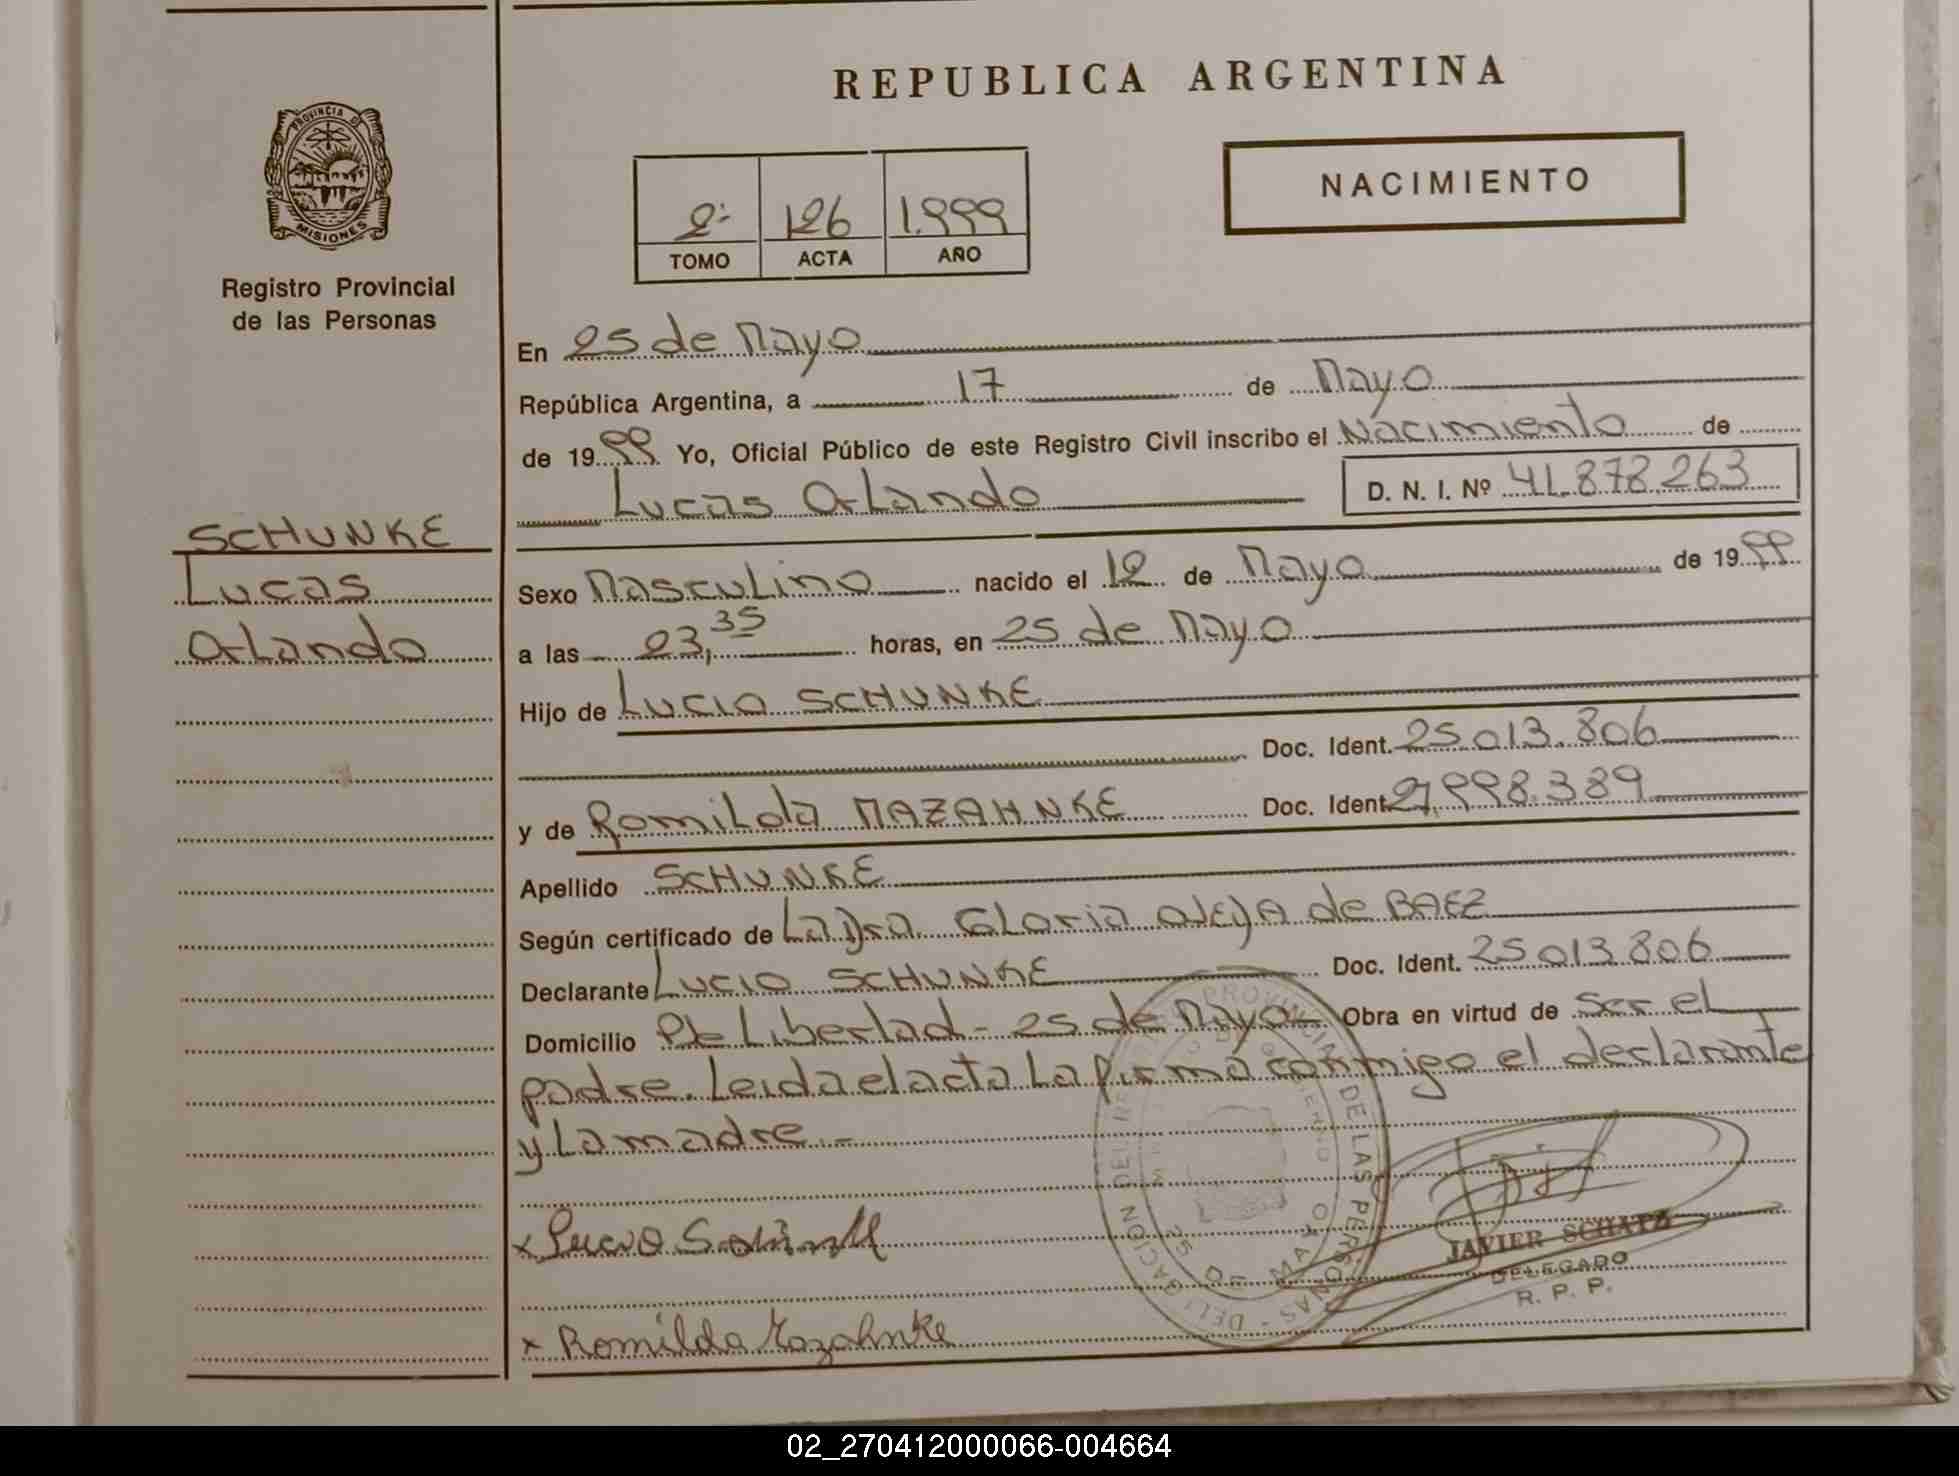 REPUBLICA ARGENTINA
PROVINCIA DE
MISIONES
Registro Provincial
de las Personas
NACIMIENTO
2º 126 1.999
TOMO ACTA AÑO
En 25 de Mayo
República Argentina, a 17 de Mayo
de 1999 Yo, Oficial Público de este Registro Civil inscribo el Nacimiento de
Lucas Orlando D. N. I. Nº 41.878.263
SCHUNKE
Lucas
Orlando
Sexo Masculino nacido el 12 de Mayo de 1999
a las 23,35 horas, en 25 de Mayo
Hijo de Lucio SCHUNKE
Doc. Ident. 25.013.806
y de Romilda MAZAHNKE Doc. Ident. 27.998.389
Apellido SCHUNKE
Según certificado de La Dra. Gloria OJEDA de BAEZ
Declarante Lucio SCHUNKE Doc. Ident. 25.013.806
Domicilio Pje Libertad - 25 de Mayo- Obra en virtud de ser el
padre. Leida el acta La firma conmigo el declarante
y La madre.-
x Lucio
x Romilda Mazahnke
DELEGACION DEL REGISTRO PROVINCIAL DE LAS PERSONAS
25 DE MAYO
JAVIER SCHATZ
DELEGADO
R. P. P.
02_270412000066-004664